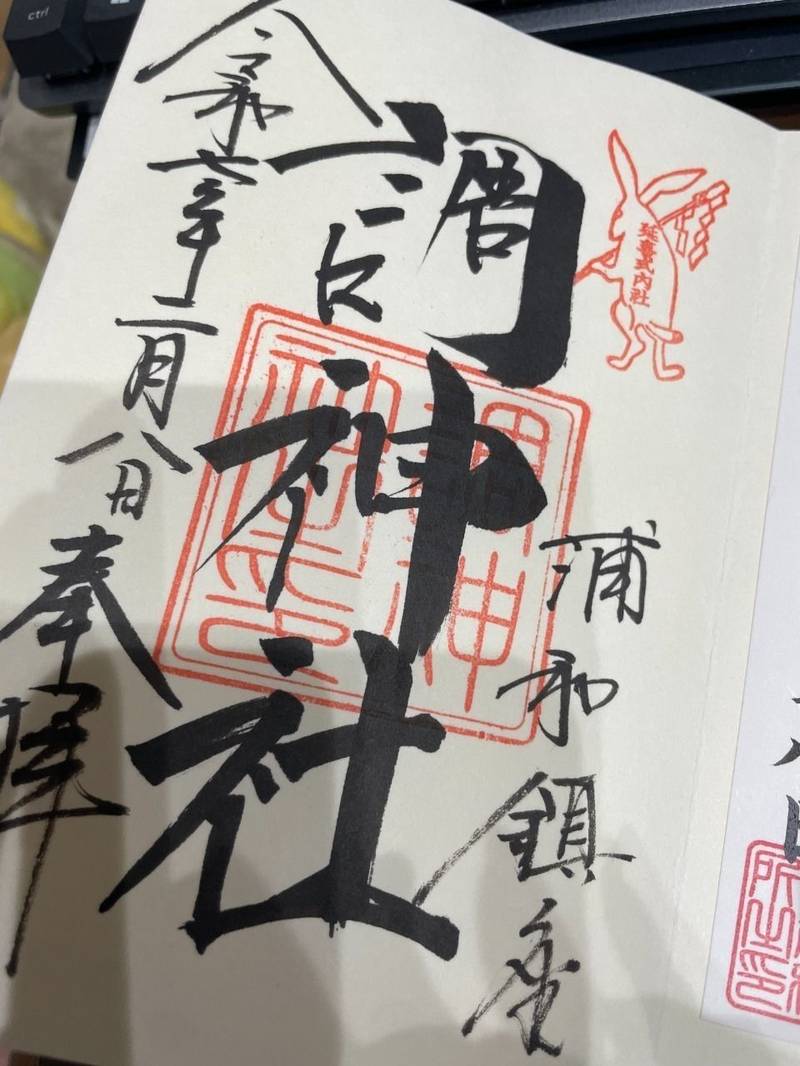 延喜式内社
浦和鎮座
調神社
調神社印
令和七年二月八日奉拝
ctrl